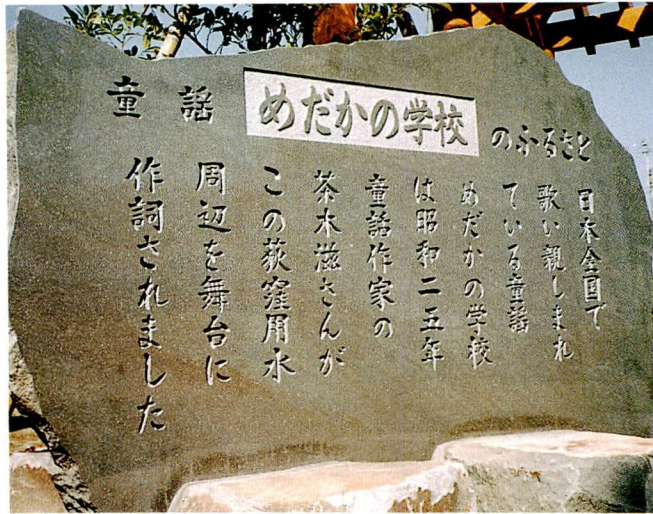 童謡 めだかの学校 のふるさと
日本全国で
歌い親しまれ
ている童謡
めだかの学校
は昭和二五年
童話作家の
茶木滋さんが
この荻窪用水
周辺を舞台に
作詞されました